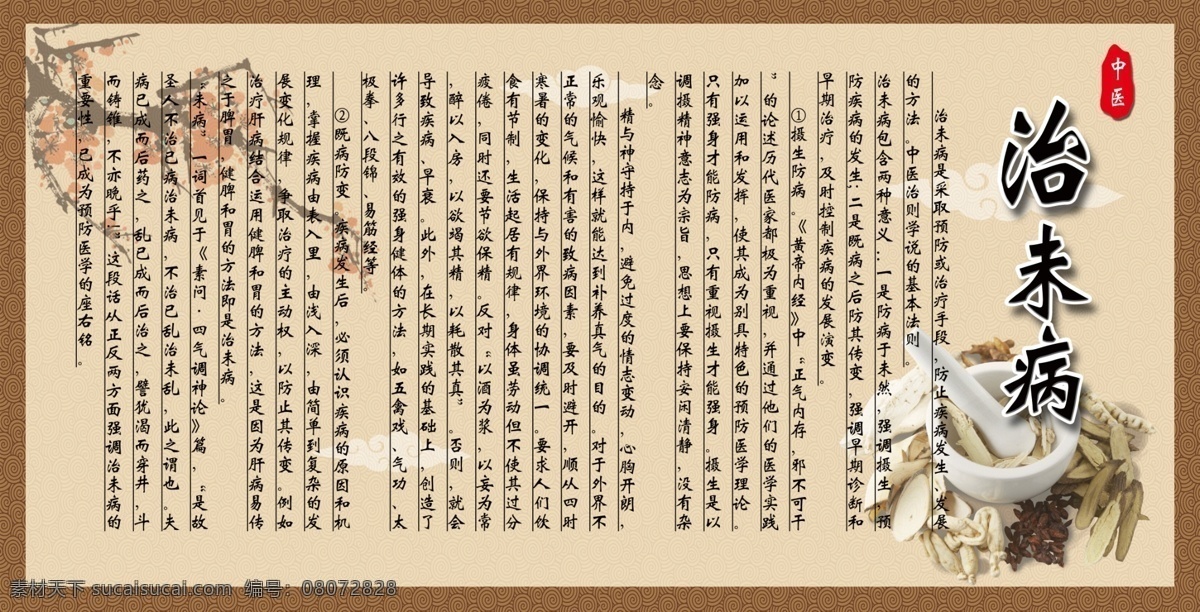 中医
治未病
治未病是采取预防或治疗手段，防止疾病发生、发展
的方法。中医治则学说的基本法则。
治未病包含两种意义：一是防病于未然，强调摄生，预
防疾病的发生；二是既病之后防其传变，强调早期诊断和
早期治疗，及时控制疾病的发展演变。
①摄生防病。《黄帝内经》中“正气内存，邪不可干
”的论述历代医家都极为重视，并通过他们的医学实践
加以运用和发挥，使其成为别具特色的预防医学理论。
只有强身才能防病，只有重视摄生才能强身。摄生是以
调摄精神意志为宗旨，思想上要保持安闲清静，没有杂
念。
精与神守持于内，避免过度的情志变动，心胸开朗，
乐观愉快，这样就能达到补养真气的目的。对于外界不
正常的气候和有害的致病因素，要及时避开，顺从四时
寒暑的变化，保持与外界环境的协调统一。要求人们饮
食有节制，生活起居有规律，身体虽劳动但不使其过分
疲倦，同时还要节欲保精。反对“以酒为浆，以妄为常
，醉以入房，以欲竭其精，以耗散其真”。否则，就会
导致疾病、早衰。此外，在长期实践的基础上，创造了
许多行之有效的强身健体的方法，如五禽戏、气功、太
极拳、八段锦、易筋经等。
②既病防变。疾病发生后，必须认识疾病的原因和机
理，掌握疾病由表入里，由浅入深，由简单到复杂的发
展变化规律，争取治疗的主动权，以防止其传变。例如
治疗肝病结合运用健脾和胃的方法，这是因为肝病易传
之于脾胃，健脾和胃的方法即是治未病。
“未病”一词首见于《素问·四气调神论》篇，“是故
圣人不治已病治未病，不治已乱治未乱，此之谓也。夫
病已成而后药之，乱已成而后治之，譬犹渴而穿井，斗
而铸锥，不亦晚乎！”这段话从正反两方面强调治未病的
重要性，已成为预防医学的座右铭。
素材天下 sucaisucai.com 编号：08072828